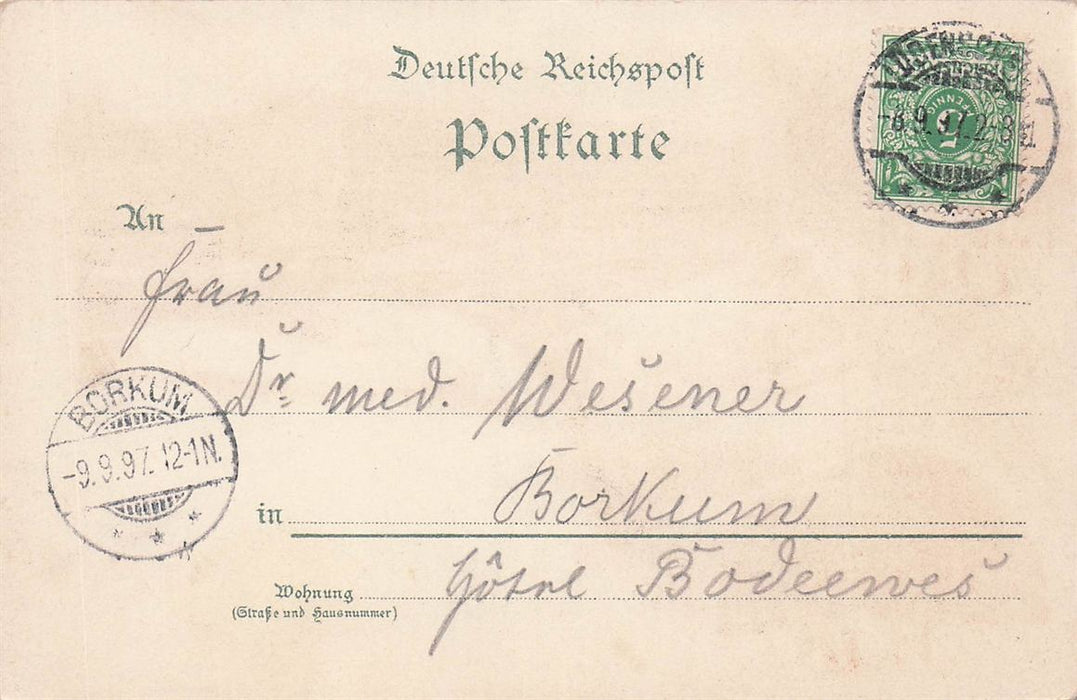 Deutsche Reichspost
Postkarte
5
PFENNIG
9.97. 2-3N
An
Frau
Dr. med. Wesener
BORKUM
-9.9.97. 12-1N.
in Borkum
Wohnung Hôtel
(Straße und Hausnummer)